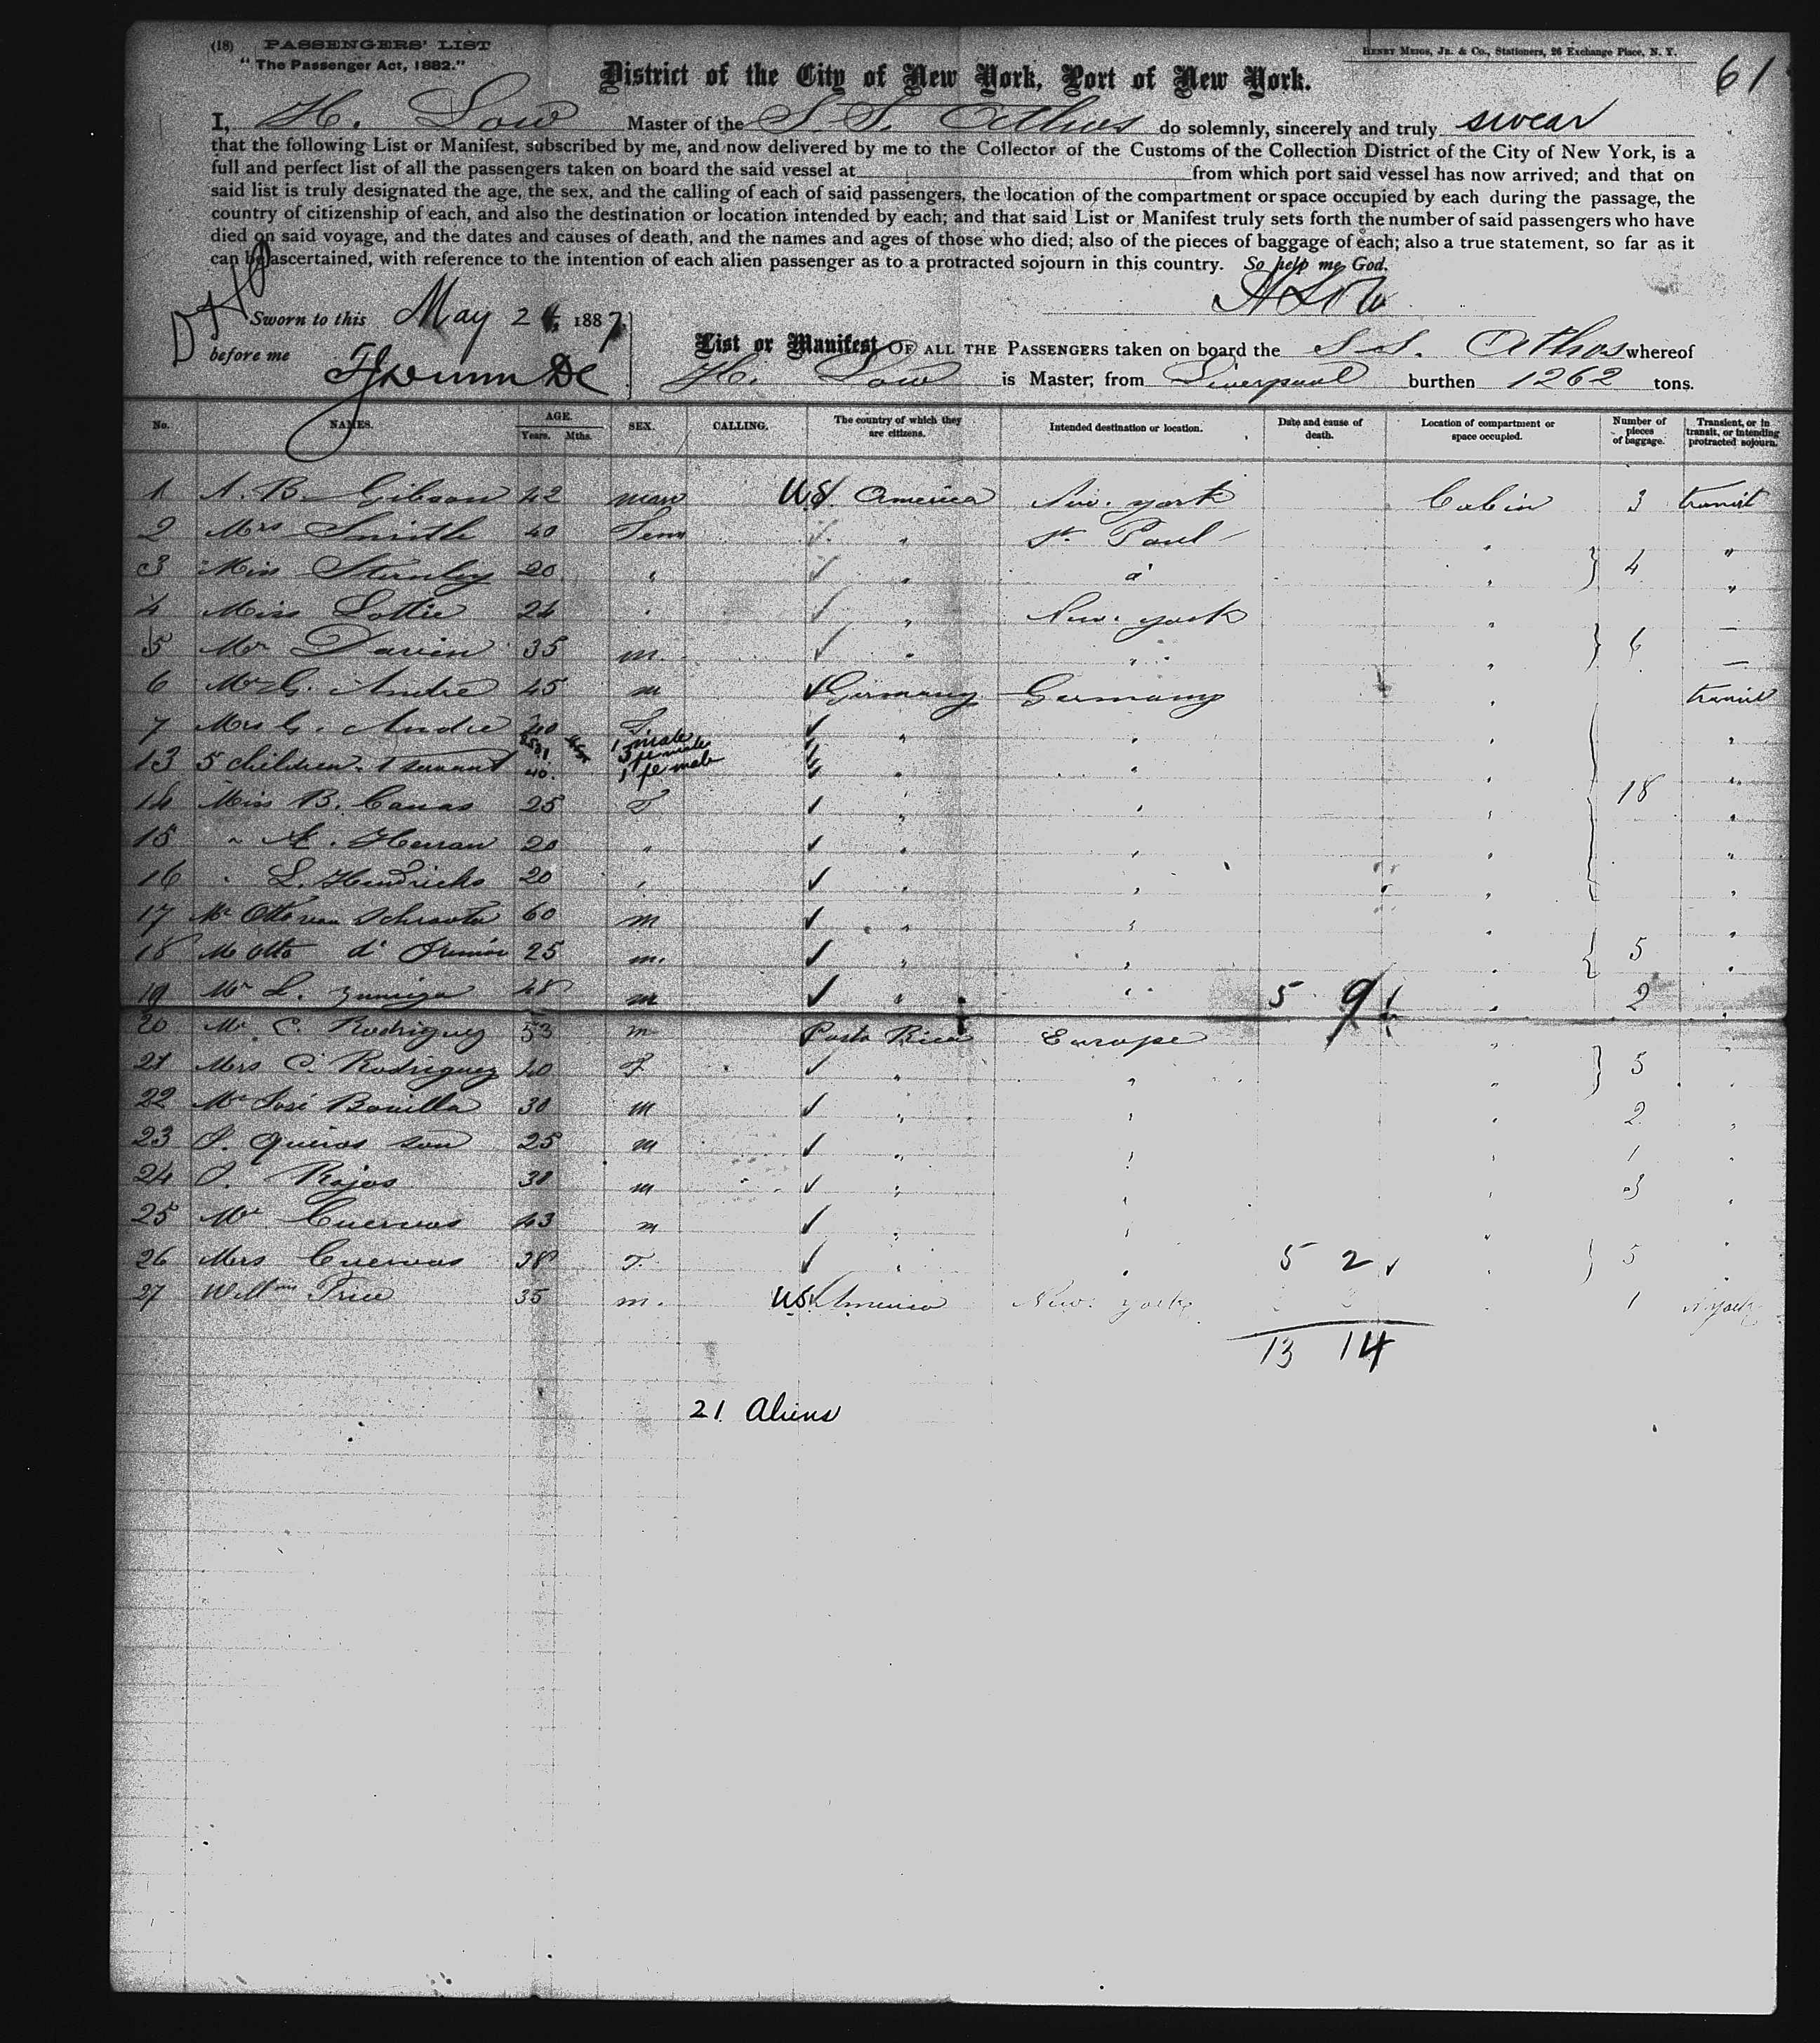 (18) PASSENGERS' LIST
"The Passenger Act, 1882."
HENRY MEIGS, JR. & CO., Stationers, 26 Exchange Place, N. Y.
61
District of the City of New York, Port of New York.
I, H. Low Master of the S.S. Athos do solemnly, sincerely and truly swear
that the following List or Manifest, subscribed by me, and now delivered by me to the Collector of the Customs of the Collection District of the City of New York, is a
full and perfect list of all the passengers taken on board the said vessel at from which port said vessel has now arrived; and that on
said list is truly designated the age, the sex, and the calling of each of said passengers, the location of the compartment or space occupied by each during the passage, the
country of citizenship of each, and also the destination or location intended by each; and that said List or Manifest truly sets forth the number of said passengers who have
died on said voyage, and the dates and causes of death, and the names and ages of those who died; also of the pieces of baggage of each; also a true statement, so far as it
can be ascertained, with reference to the intention of each alien passenger as to a protracted sojourn in this country. So help me God.
H Low
Sworn to this May 24, 1887,
before me
List or Manifest OF ALL THE PASSENGERS taken on board the S S. Athos whereof
H. Low is Master, from Liverpool burthen 1262 tons.
No. NAMES. AGE. Years. Mths. SEX. CALLING. The country of which they are citizens. Intended destination or location. Date and cause of death. Location of compartment or space occupied. Number of pieces of baggage. Transient, or in transit, or intending protracted sojourn.
1 A. B. Gibson 42 man U.S. America New York Cabin 3 transit
2 Mrs Smith 40 Fem " St. Paul " "
3 Miss Stanley 20 " " " " 4 "
4 Miss Lottie 24 " " New York "
5 Mr Davin 35 m. " " " 6
6 Mr G. Andre 45 m Germany Germany " transit
7 Mrs G. Andre 40 F. " " " "
13 5 children 1 servant 40. 1 male 5 female 1 female " " " "
14 Miss B. Canas 25 F " " " 18 "
15 " Herran 20 " " " " "
16 " L. Hendrichs 20 " " " " "
17 Mr Otto von Schroter 60 m " " " "
18 Mr Otto d° Junior 25 m. " " " 5 "
19 Mr L. Zuniga 48 m " " 5 9 " 2 "
20 Mr C. Rodriguez 53 m Costa Rica Europe " "
21 Mrs C. Rodriguez 40 F " " " 5 "
22 Mr José Bonilla 30 m " " " 2 "
23 J. Quiros 25 m " " " 1 "
24 J. Rojas 30 m " " " 3 "
25 Mr Cuervas 43 m " " " "
26 Mrs Cuervas 38 F. " " 5 2 " 5 "
27 Willm Price 35 m. U.S. America New York 1 N. York
13 14
21 Aliens